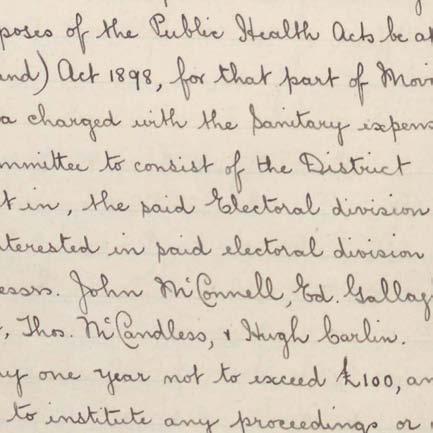 poses of the Public Health Acts be at
and) Act 1898, for that part of Movi
a charged with the Sanitary expens
mmittee to consist of the District
t in, the said Electoral division
terested in said electoral division
essrs. John McConnell, Ed. Gallag
, Thos. McCandless, & Hugh Carlin.
y one year not to exceed £100, an
to institute any proceedings or